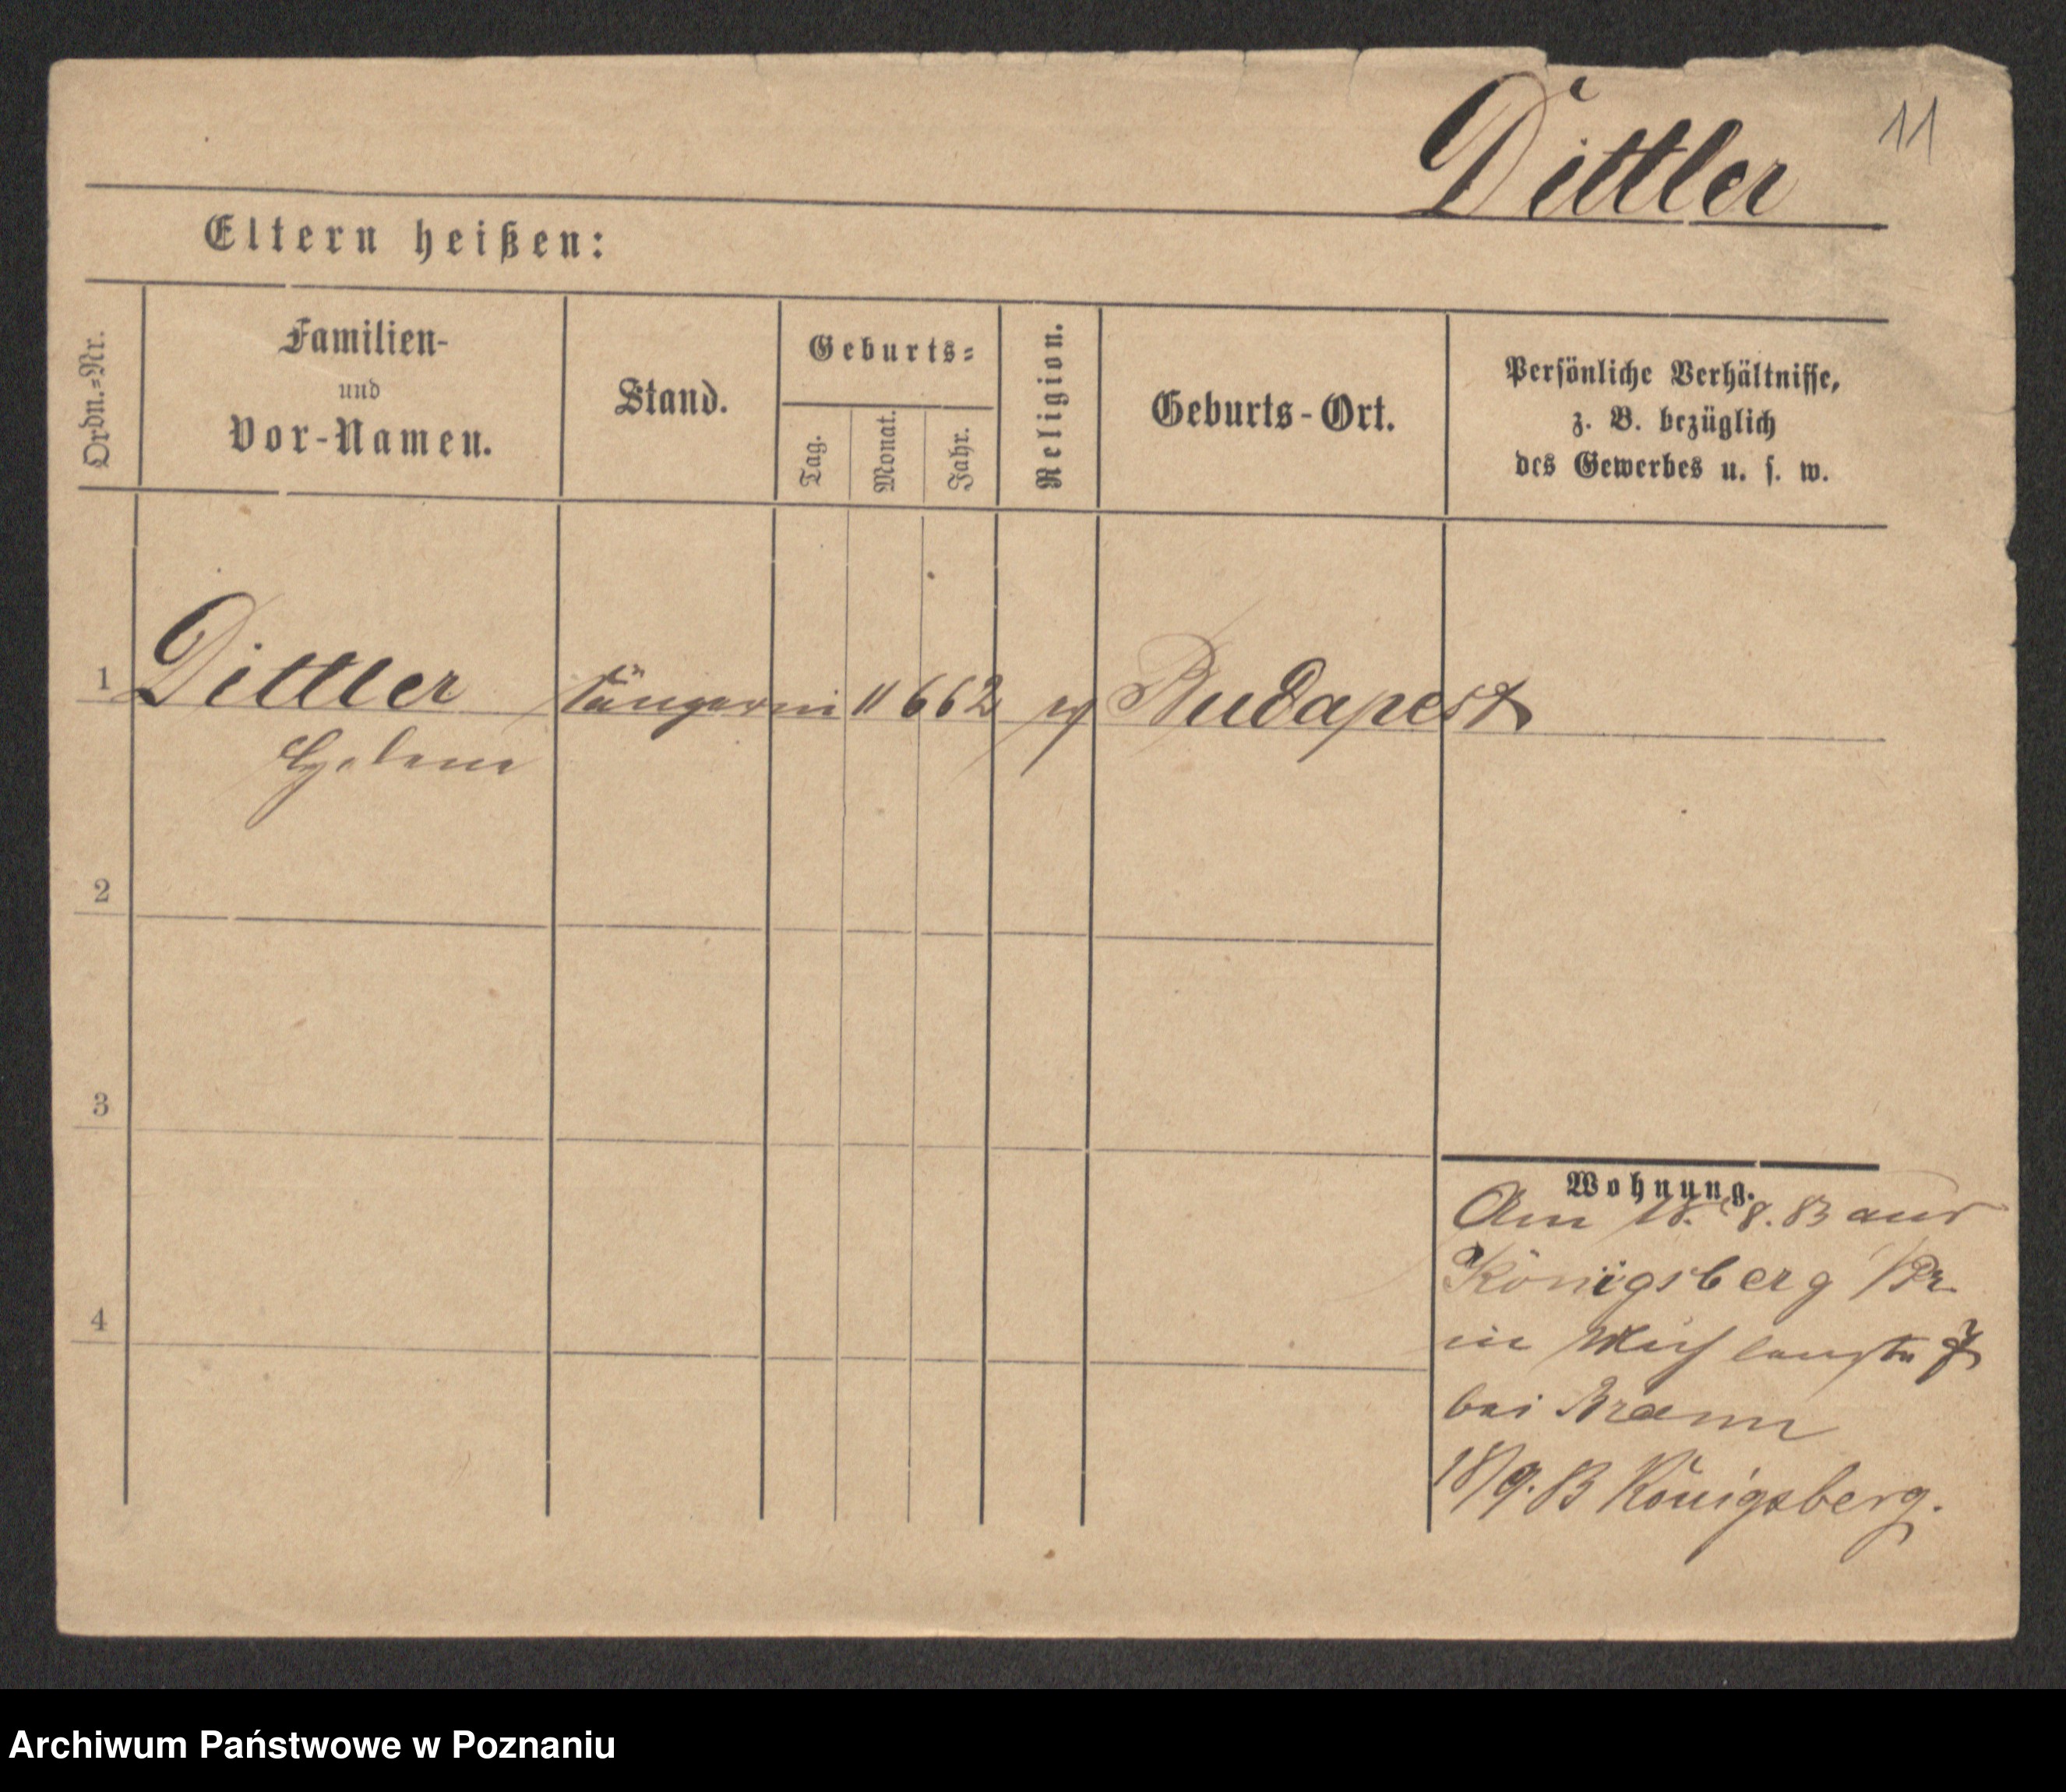 Dittler 11
Eltern heißen:
Ordn.=Nr.
Familien-
und
Vor-Namen.
Stand.
Geburts=
Tag.
Monat.
Jahr.
Religion.
Geburts-Ort.
Persönliche Verhältnisse,
z. B. bezüglich
des Gewerbes u. s. w.
1 Dittler Sängerin 11 6 62 Budapest
2
3
4
Wohnung.
Am 18. 8. 83 aus
Königsberg /Pr
in
bei Bramm
18/9. 83 Königsberg.
Archiwum Państwowe w Poznaniu